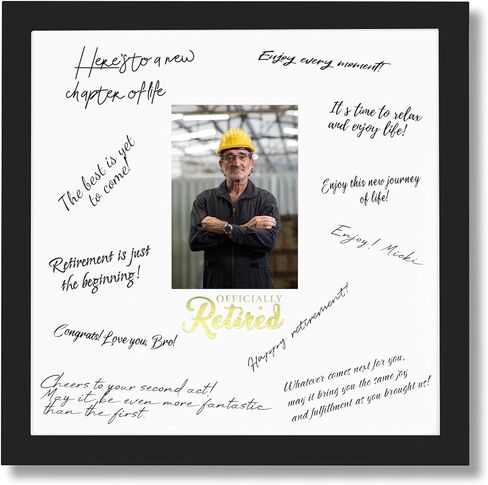 Here's to a new
chapter of life
Enjoy every moment!
It's time to relax
and enjoy life!
The best is yet
to come!
Enjoy this new journey
of life!
Enjoy! Micki
Retirement is just
the beginning!
OFFICIALLY
Retired
Happy retirement!
Congrats! Love you, Bro!
Cheers to your second act!
May it be even more fantastic
than the first.
Whatever comes next for you,
may it bring you the same joy
and fulfillment as you brought us!